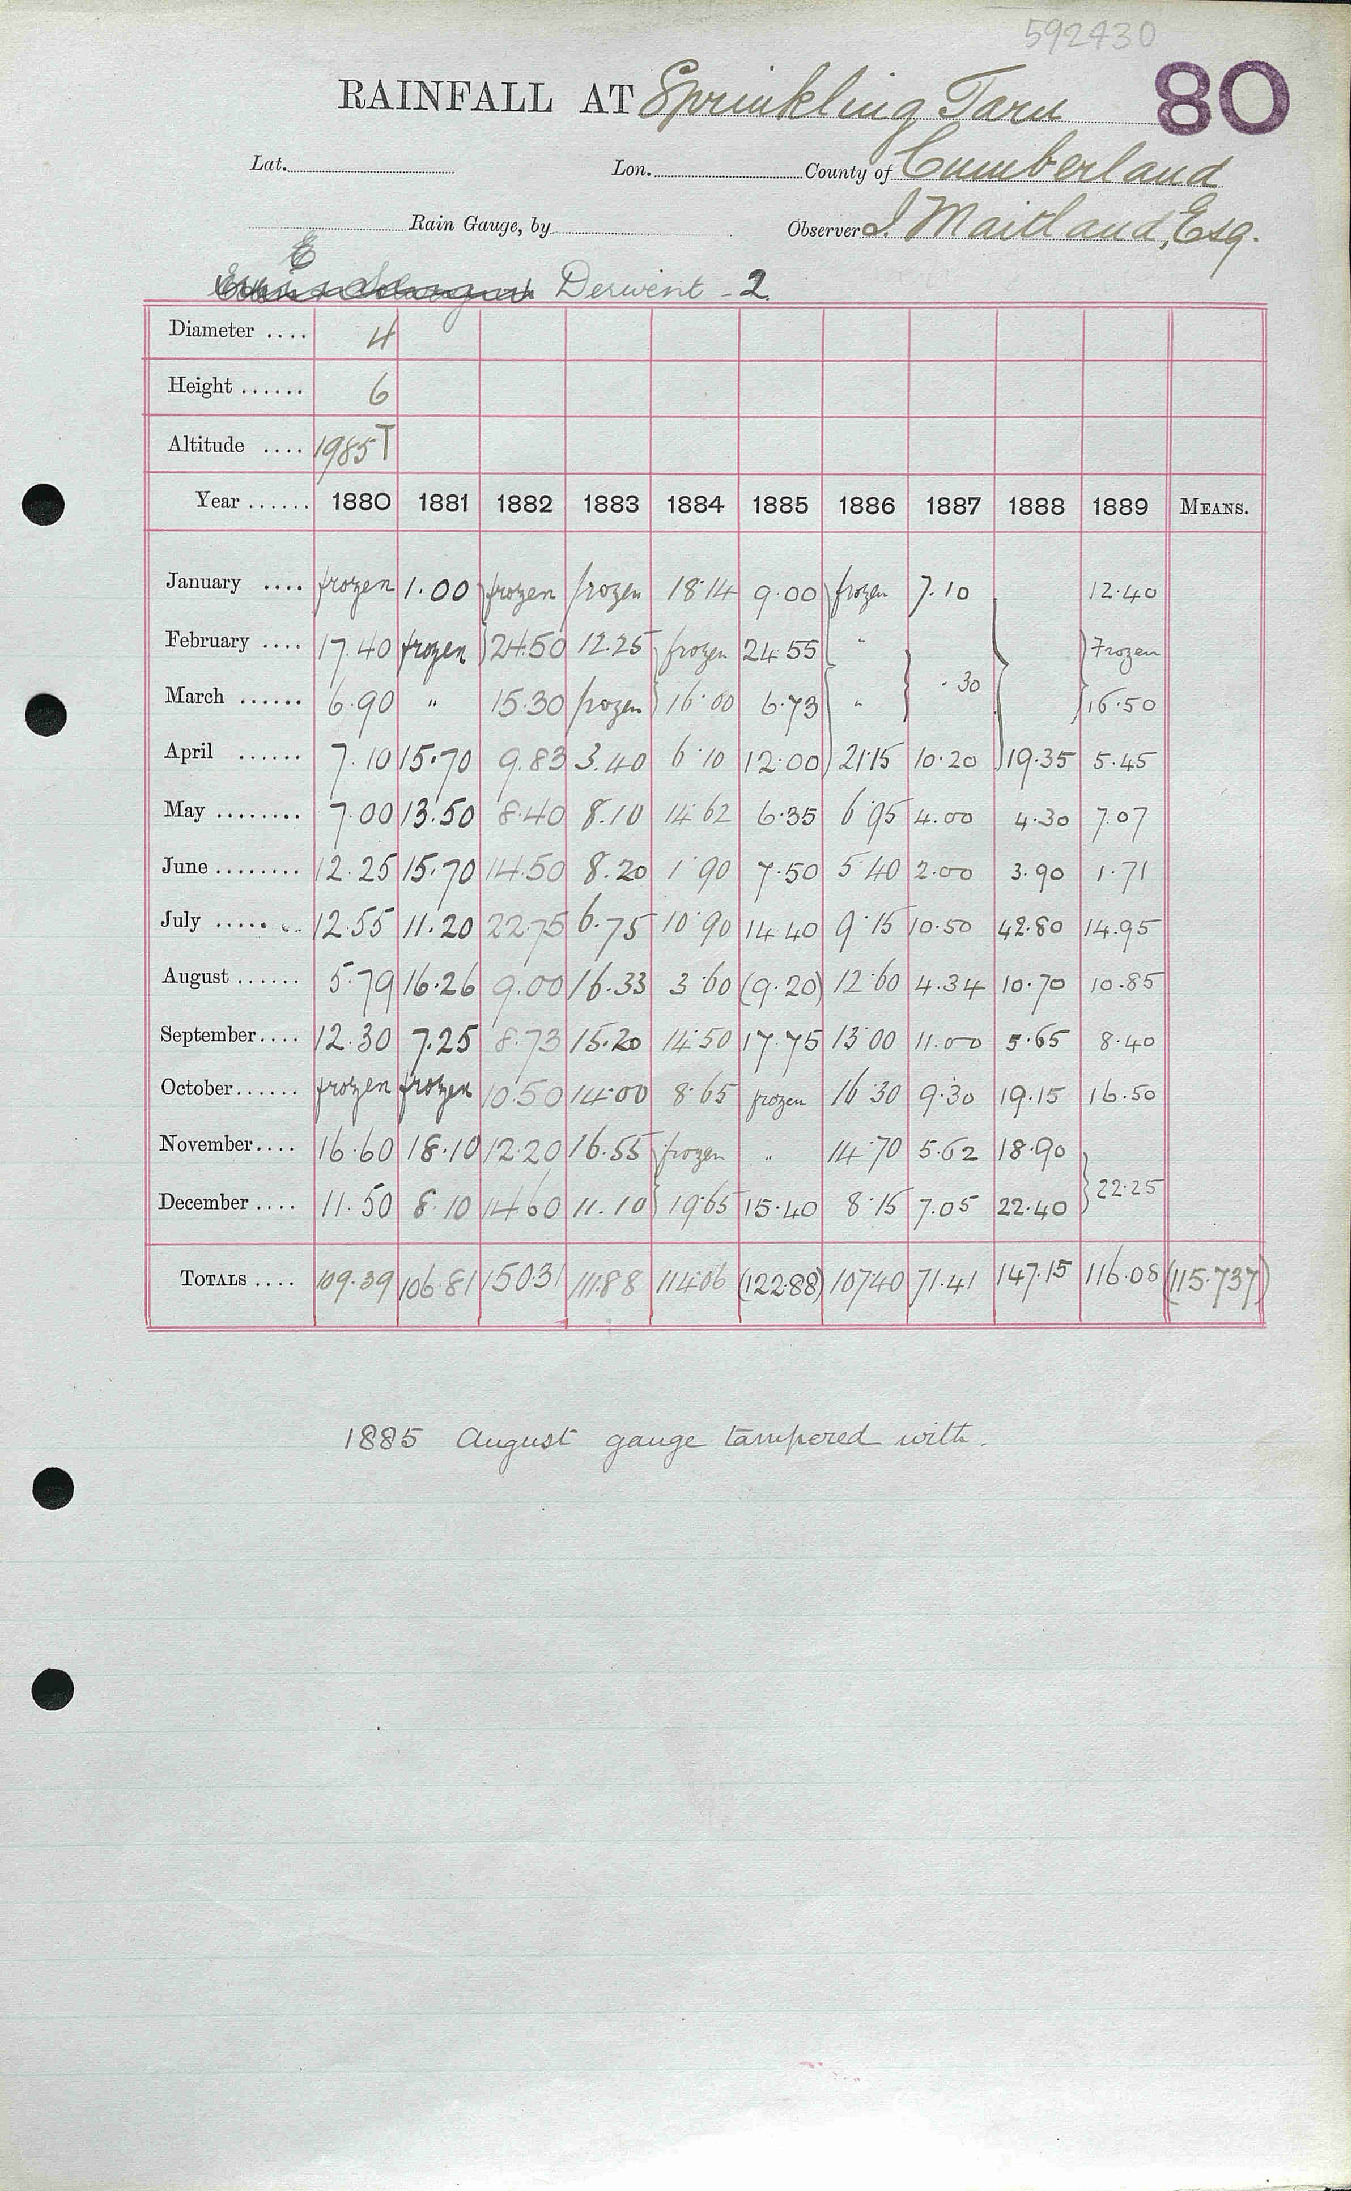 592430
RAINFALL AT Sprinkling Tarn 80
Lat. Lon. County of Cumberland
Rain Gauge, by Observer I. Maitland, Esq.
E
Derwent - 2
Diameter .... 4
Height ...... 6
Altitude .... 1985 T
Year ...... 1880 1881 1882 1883 1884 1885 1886 1887 1888 1889 MEANS.
January .... frozen 1.00 frozen frozen 18.14 9.00 frozen 7.10 12.40
February .... 17.40 frozen 24.50 12.25 frozen 24.55 " Frozen
March ...... 6.90 " 15.30 frozen 16.00 6.73 " .30 16.50
April ...... 7.10 15.70 9.83 3.40 6.10 12.00 21.15 10.20 19.35 5.45
May ........ 7.00 13.50 8.40 8.10 14.62 6.35 6.95 4.00 4.30 7.07
June ........ 12.25 15.70 14.50 8.20 1.90 7.50 5.40 2.00 3.90 1.71
July ..... 12.55 11.20 22.75 6.75 10.90 14.40 9.15 10.50 42.80 14.95
August ...... 5.79 16.26 9.00 16.33 3.60 (9.20) 12.60 4.34 10.70 10.85
September.... 12.30 7.25 8.73 15.20 14.50 17.75 13.00 11.00 5.65 8.40
October...... frozen frozen 10.50 14.00 8.65 frozen 16.30 9.30 19.15 16.50
November.... 16.60 18.10 12.20 16.55 frozen " 14.70 5.62 18.90
December .... 11.50 8.10 14.60 11.10 19.65 15.40 8.15 7.05 22.40 22.25
TOTALS .... 109.39 106.81 150.31 111.88 114.06 (122.88) 107.40 71.41 147.15 116.08 (115.737)
1885 August gauge tampered with.